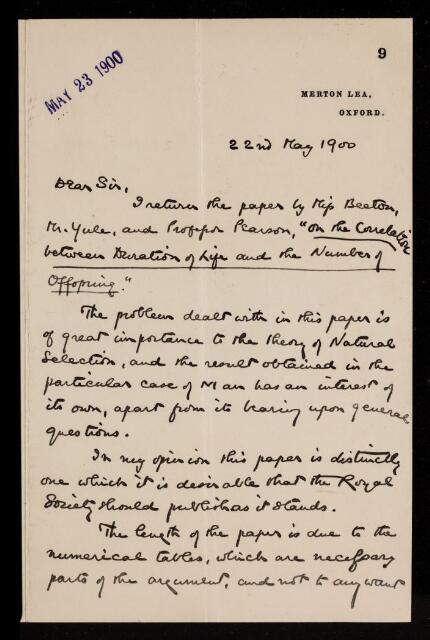 9
MAY 23 1900
MERTON LEA,
OXFORD.
22nd May 1900
Dear Sir,
I return the paper by Miss Beeton,
Mr. Yule, and Professor Pearson, "On the Correlation
between Duration of Life and the Number of
Offspring."
The problem dealt with in this paper is
of great importance to the theory of Natural
Selection, and the result obtained in the
particular case of Man has an interest of
its own, apart from its bearing upon general
questions.
In my opinion this paper is distinctly
one which it is desirable that the Royal
Society should publish as it stands.
The length of the paper is due to the
numerical tables, which are necessary
parts of the argument, and not to any want